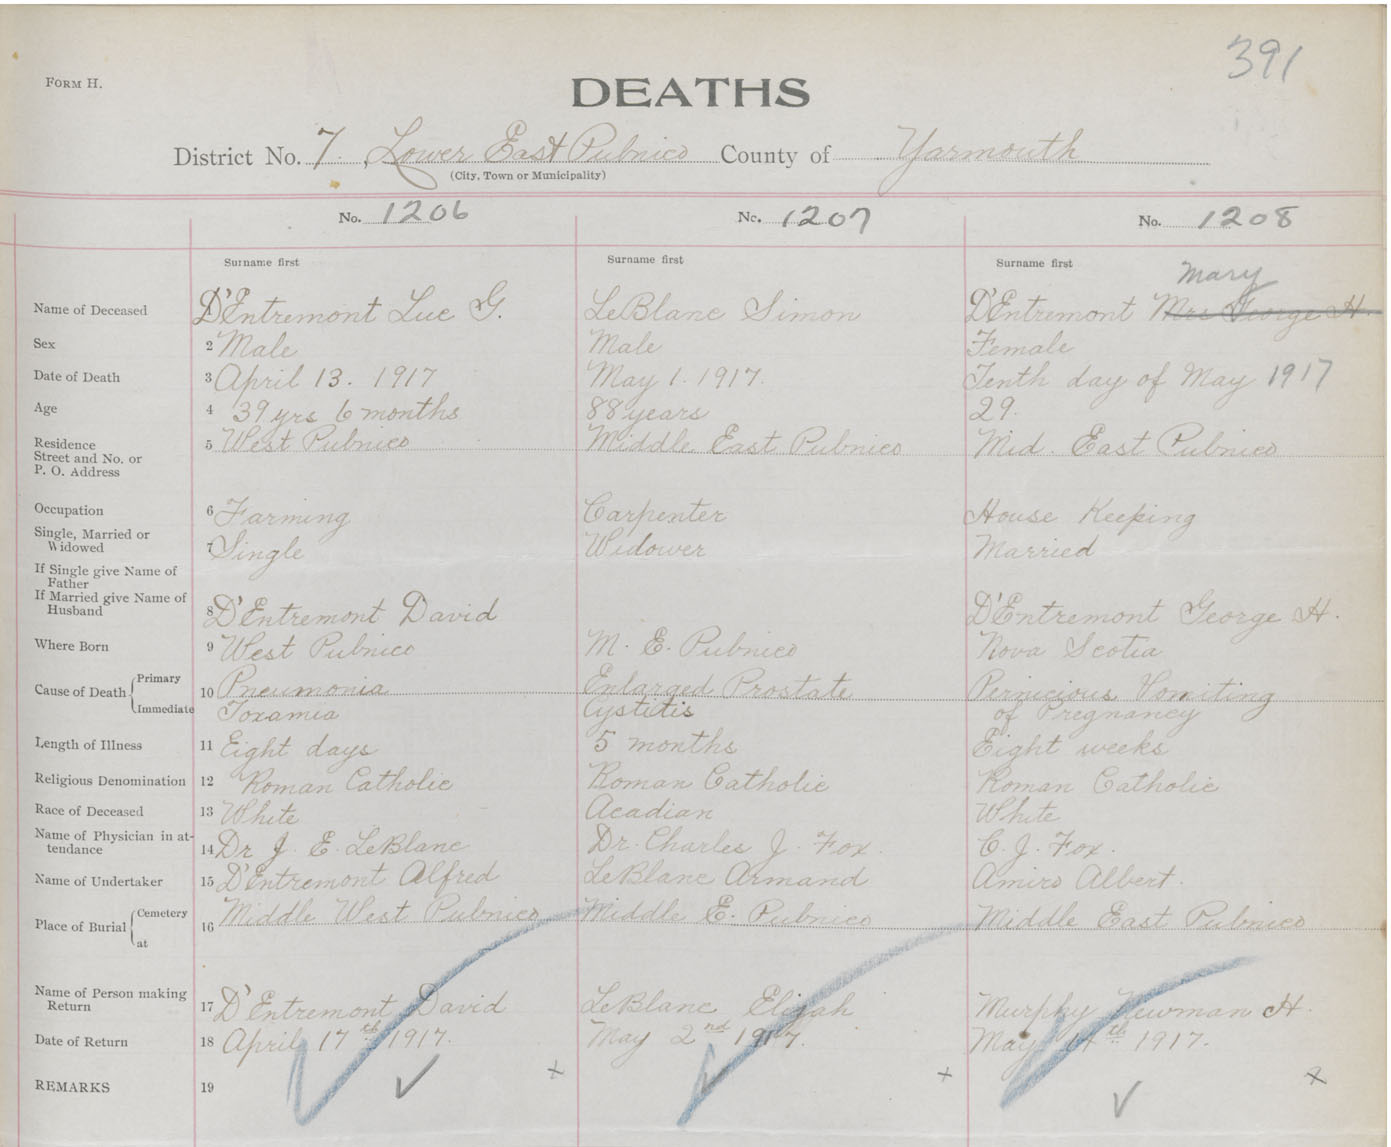 391
FORM H.
DEATHS
District No. 7. , Lower East Pubnico County of Yarmouth
(City, Town or Municipality)
No. 1206 No. 1207 No. 1208
Surname first Surname first Surname first
Mary
Name of Deceased 1 D'Entremont Luc G. LeBlanc Simon D'Entremont Mrs George H.
Sex 2 Male Male Female
Date of Death 3 April 13. 1917 May 1. 1917. Tenth day of May 1917
Age 4 39 yrs 6 months 88 years 29.
Residence 5 West Pubnico Middle East Pubnico Mid. East Pubnico
Street and No. or
P. O. Address
Occupation 6 Farming Carpenter House Keeping
Single, Married or
Widowed 7 Single Widower Married
If Single give Name of
Father
If Married give Name of
Husband 8 D'Entremont David D'Entremont George H.
Where Born 9 West Pubnico M. E. Pubnico Nova Scotia
Cause of Death Primary 10 Pneumonia Enlarged Prostate Pernicious Vomiting
Immediate Toxamia Cystitis of Pregnancy
Length of Illness 11 Eight days 5 months Eight weeks
Religious Denomination 12 Roman Catholic Roman Catholic Roman Catholic
Race of Deceased 13 White Acadian White
Name of Physician in at-
tendance 14 Dr J. E. LeBlanc Dr. Charles J. Fox. C. J. Fox.
Name of Undertaker 15 D'Entremont Alfred LeBlanc Armand Amiro Albert.
Place of Burial Cemetery 16 Middle West Pubnico Middle E. Pubnico Middle East Pubnico
at
Name of Person making
Return 17 D'Entremont David LeBlanc Elijah Murphy Newman H.
Date of Return 18 April 17th 1917. May 2nd 1917. May th 1917.
REMARKS 19